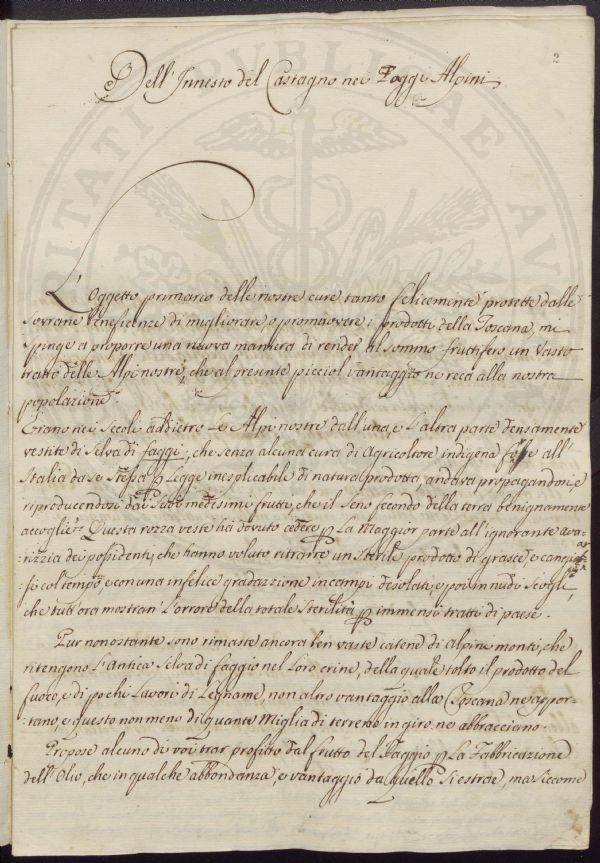 2
Dell'Innesto del Castagno nei Faggi Alpini
L'Oggetto primario delle nostre cure tanto felicemente protette dalle
Sovrane beneficenze di migliorare, o promuovere i prodotti della Toscana, mi
spinge a proporre una nuova maniera di render al sommo fruttifero un Vasto
tratto delle Alpi nostre, che al presente picciol vantaggio ne reca alla nostra
popolazione.
Erano nei Secoli addietro Le Alpi nostre dall'una, e L'altra parte densamente
vestite di Selva di faggi, che senza alcuna cura di Agricoltore indigena fosse all'
Italia da se stessa p Legge inesplicabile di natura prodotta, andava propagandosi, e
riproducendosi dai suoi medesimi frutti, che il seno fecondo della terra benignamente
accoglie. Questa rozza veste hà dovuto cedere p La Maggior parte all'ignorante ava-
:rizzia dei possidenti, che hanno voluto ritrarre un sterile prodotto di grasce, e
:si col tempo, e con una infelice gradazzione in campi desolati, e poi in nudi Scogli
che tutt'ora mostran L'orrore della totale Sterilità p immensi tratti di paese.
Pur nonostante sono rimaste ancora ben vaste catene di Alpine monti, che
ritengono L'antica Selva di faggio nel Loro crine, della quale tolto il prodotto del
fuoco, e di pochi Lavori di Legname, non altro vantaggio alla Toscana ne appor-
:tano, e questo non meno di quante Miglia di terreno in giro ne abbracciano.
Propose alcuno di voi trar profitto dal frutto del Faggio p La Fabbricazione
dell'Olio, che in qualche abbondanza, e vantaggio da quello si estrae, ma siccome
PUBLICAE